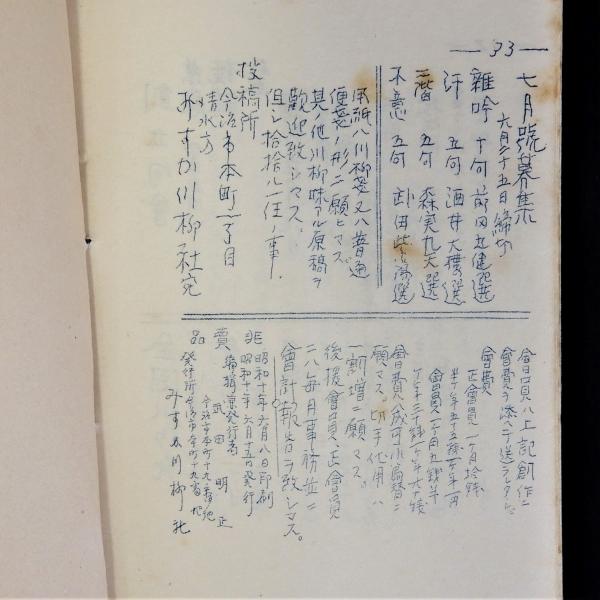 — 33 —
七月號募集
六月二十五日締切
雜吟 十句 前田五健選
汗 五句 酒井大樓選
二階 五句 森実九天選
不意 五句 選
用紙ハ川柳箋又ハ普通
便箋ノ形ニ願ヒマス
其ノ他川柳味アル原稿ヲ
歡迎致シマス、
但シ拾捨ハ一任ノ事.
投稿所
今治市本町一丁目
清水方
みすか川柳社宛
會員ハ上記創作ニ
會費ヲ添ヘテ送ラレタシ
會費
正會員 一ヶ月拾錢
半ヶ年五十五錢 一ヶ年一円
會員 一ヶ月五錢 半
ヶ年三十錢 一ヶ年六十錢
會費ハ成可小為替ニ
願マス。切手代用ハ
一割増ニ願マス。
後援會員、正會員
ニハ毎月事務並ニ
會計報告ヲ致シマス。
昭和十年六月八日印刷
昭和十年六月十五日發行
非賣品
編輯兼發行者
今治市本町十九番地
武田明正
發行所 今治市本町十九番地
みすか川柳社